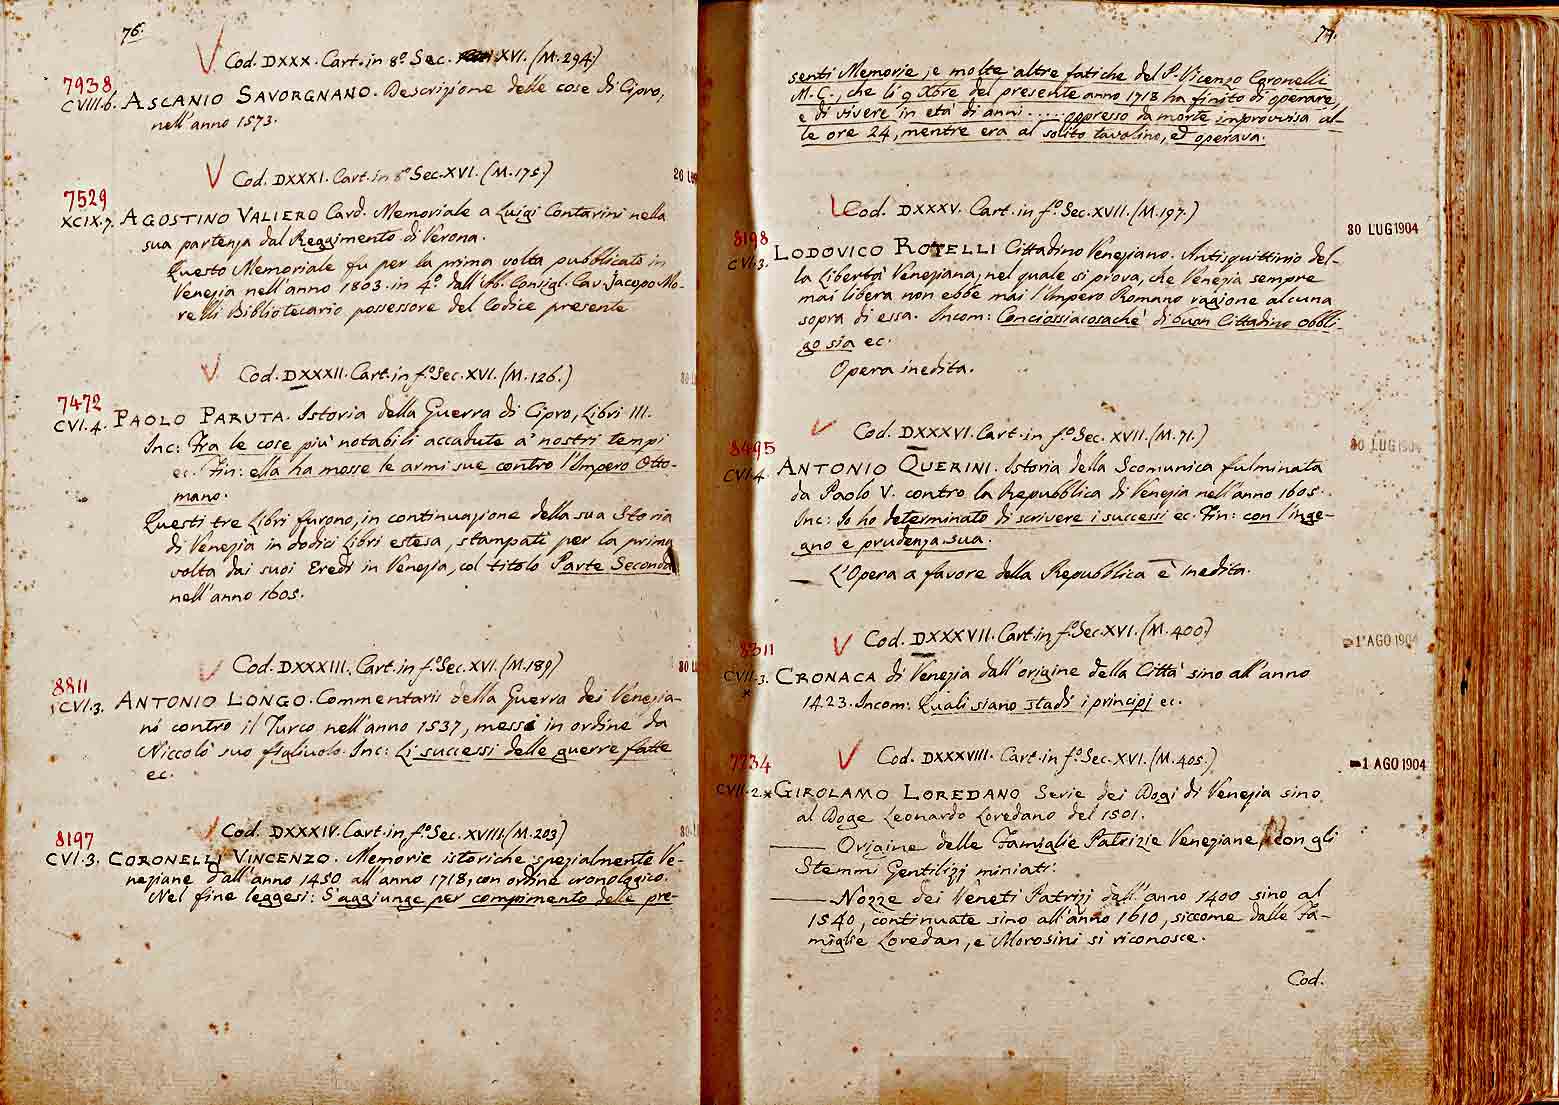 76.
Cod. DXXX. Cart. in 8.º Sec. XVI. (M. 294.)
7938
CVIII.6. ASCANIO SAVORGNANO. Descrizione delle cose di Cipro,
nell'anno 1573.
Cod. DXXXI. Cart. in 8º Sec. XVI. (M. 175.)
26
7529
XCIX.7. AGOSTINO VALIERO Card. Memoriale a Luigi Contarini nella
sua partenza dal Reggimento di Verona.
Questo Memoriale fu per la prima volta pubblicato in
Venezia nell'anno 1803. in 4.º dall'Ab. Consigl. Cav. Jacopo Mo-
relli Bibliotecario possessore del Codice presente
Cod. DXXXII. Cart. in fº. Sec. XVI. (M. 126.)
7472
CVI.4. PAOLO PARUTA. Istoria della Guerra di Cipro, Libri III.
Inc: Fra le cose più notabili accadute a' nostri tempi
ec. Fin: ella ha mosse le armi sue contro l'Impero Otto-
mano.
Questi tre Libri furono, in continuazione della sua Storia
di Venezia in dodici Libri estesa, stampati per la prima
volta dai suoi Eredi in Venezia, col titolo Parte Seconda
nell'anno 1605.
Cod. DXXXIII. Cart. in fº. Sec. XVI. (M. 189)
8811
CVI.3. ANTONIO LONGO. Commentarii della Guerra dei Venezia-
ni contro il Turco nell'anno 1537, messi in ordine da
Niccolò suo figliuolo. Inc: Li successi delle guerre fatte
ec.
Cod. DXXXIV. Cart. in fº. Sec. XVIII. (M. 203)
8197
CVI.3. CORONELLI VINCENZO. Memorie istoriche spezialmente Ve-
neziane dall'anno 1450 all'anno 1718, con ordine cronologico.
Nel fine leggesi: S'aggiunge per compimento delle pre-
77.
senti Memorie, e molte altre fatiche del P. Vicenzo Coronelli
M.C., che li 9 Xbre del presente anno 1718 ha finito di operare,
e di vivere in età di anni ..... oppresso da morte improvvisa al-
le ore 24, mentre era al solito tavolino, ed operava.
Cod. DXXXV. Cart. in fº. Sec. XVII. (M. 197.)
30 LUG 1904
8198
CVI.3. LODOVICO ROTELLI Cittadino Veneziano. Antisquittinio del-
la Libertà Veneziana, nel quale si prova, che Venezia sempre
mai libera non ebbe mai l'Impero Romano ragione alcuna
sopra di essa. Incom: Conciossiacosachè di buon Cittadino obbli-
go sia ec.
Opera inedita.
Cod. DXXXVI. Cart. in fº. Sec. XVII. (M. 71.)
30 LUG 1904
8495
CVI.4. ANTONIO QUERINI. Istoria della Scomunica fulminata
da Paolo V. contro la Repubblica di Venezia nell'anno 1605.
Inc: Io ho determinato di scrivere i successi ec. Fin: con l'inge-
gno e prudenza sua.
L'Opera a favore della Repubblica è inedita.
Cod. DXXXVII. Cart. in fº. Sec. XVI. (M. 400)
-1 AGO 1904
8311
CVII.3. CRONACA di Venezia dall'origine della Città sino all'anno
1423. Incom: Quali siano stadi i principj ec.
Cod. DXXXVIII. Cart. in fº. Sec. XVI. (M. 405.)
-1 AGO 1904
7734
CVII.2.* GIROLAMO LOREDANO Serie dei Dogi di Venezia sino
al Doge Leonardo Loredano del 1501.
— Origine delle Famiglie Patrizie Veneziane, con gli
Stemmi Gentilizj miniati.
— Nozze dei Veneti Patrizj dall'anno 1400 sino al
1540, continuate sino all'anno 1610, siccome dalle Fa-
miglie Loredan, e Morosini si riconosce.
Cod.